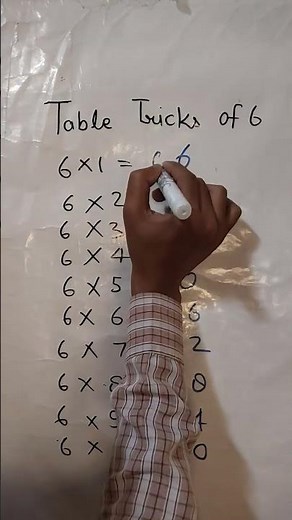 Table Tricks of 6
6 × 1 = 6
6 × 2
6 × 3
6 × 4
6 × 5 0
6 × 6 6
6 × 7 2
6 × 8 8
6 × 9 4
6 × 0